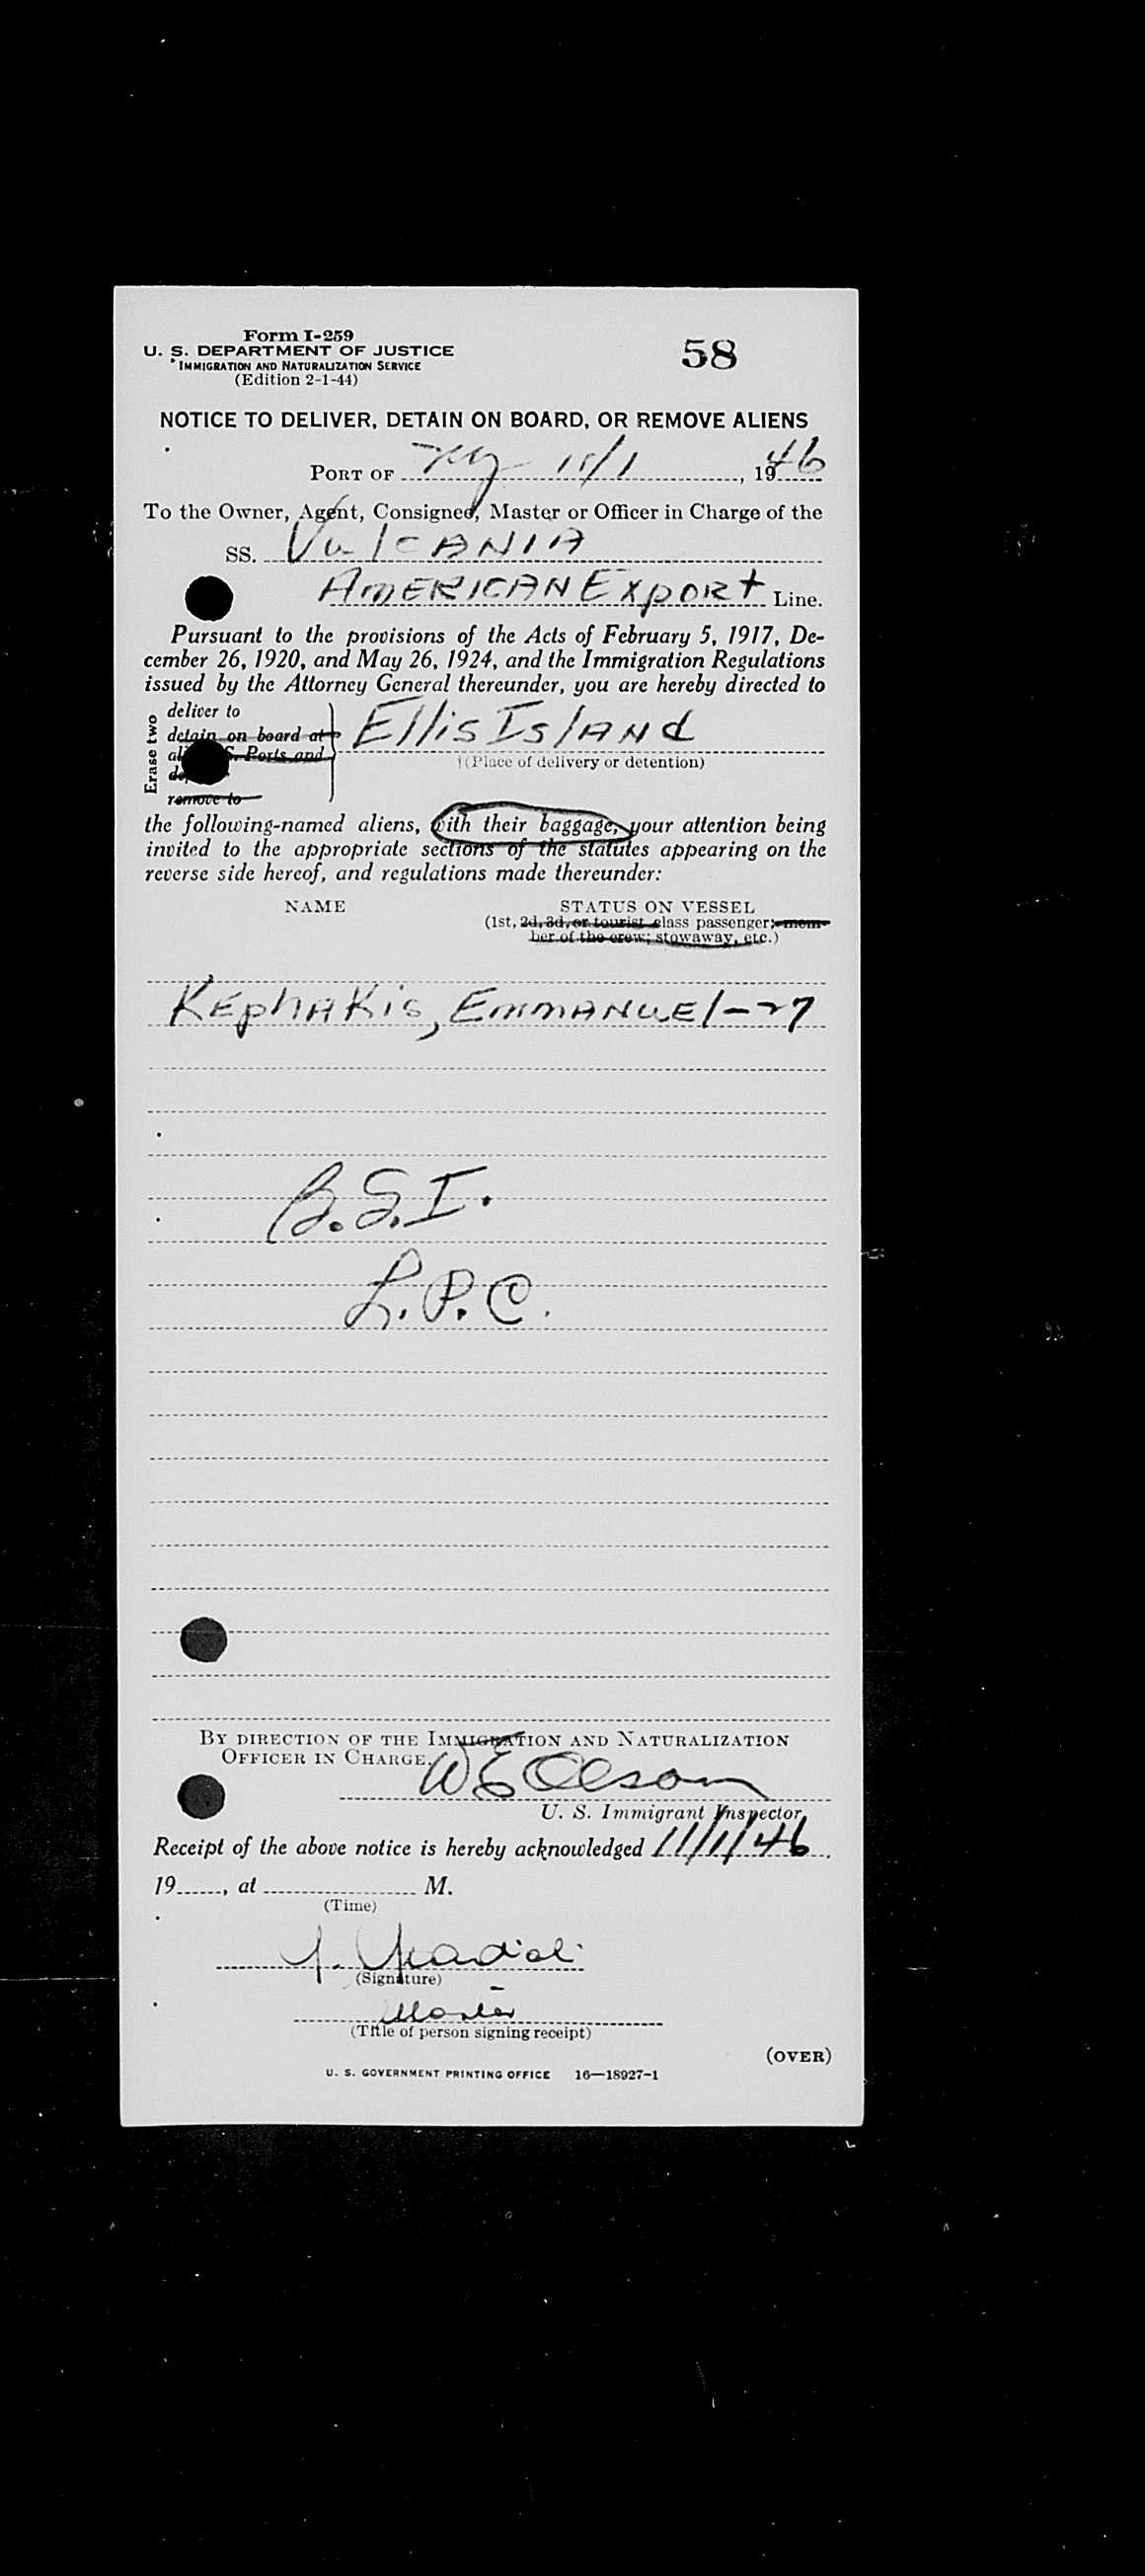 Form I-259
U. S. DEPARTMENT OF JUSTICE
IMMIGRATION AND NATURALIZATION SERVICE
(Edition 2-1-44)
58
NOTICE TO DELIVER, DETAIN ON BOARD, OR REMOVE ALIENS
PORT OF NY 11/1, 1946
To the Owner, Agent, Consignee, Master or Officer in Charge of the
SS. VulCANIA
AMERICAN Export Line.
Pursuant to the provisions of the Acts of February 5, 1917, De-
cember 26, 1920, and May 26, 1924, and the Immigration Regulations
issued by the Attorney General thereunder, you are hereby directed to
Erase two
deliver to
detain on board at
Ports and
remove to
Ellis IslAND
†(Place of delivery or detention)
the following-named aliens, with their baggage, your attention being
invited to the appropriate sections of the statutes appearing on the
reverse side hereof, and regulations made thereunder:
NAME STATUS ON VESSEL
(1st, 2d, 3d, or tourist class passenger; mem-
ber of the crew; stowaway, etc.)
KEphAKis, EMMANuEl-27
B.S.I.
L.P.C.
BY DIRECTION OF THE IMMIGRATION AND NATURALIZATION
OFFICER IN CHARGE.
W E Olson
U. S. Immigrant Inspector.
Receipt of the above notice is hereby acknowledged 11/1/46.
19......, at .................... M.
(Time)
(Signature)
Master
(Title of person signing receipt)
(OVER)
U. S. GOVERNMENT PRINTING OFFICE 16—18927-1